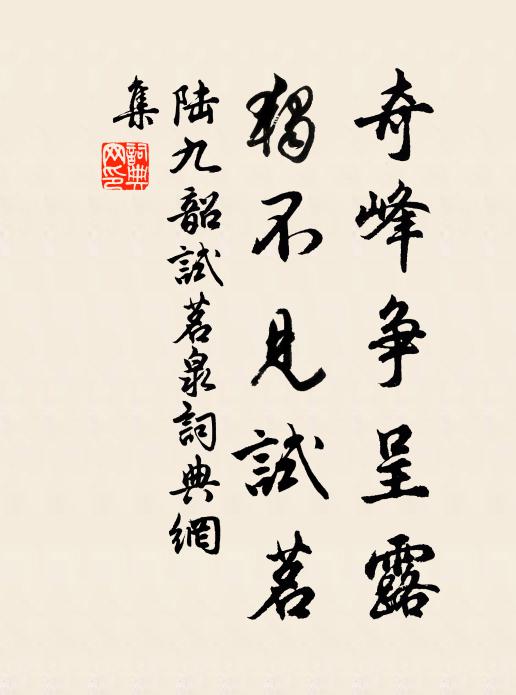 奇峰争呈露
獨不見試茗
陸九韶試茗泉詞典網
集
詞典
网印